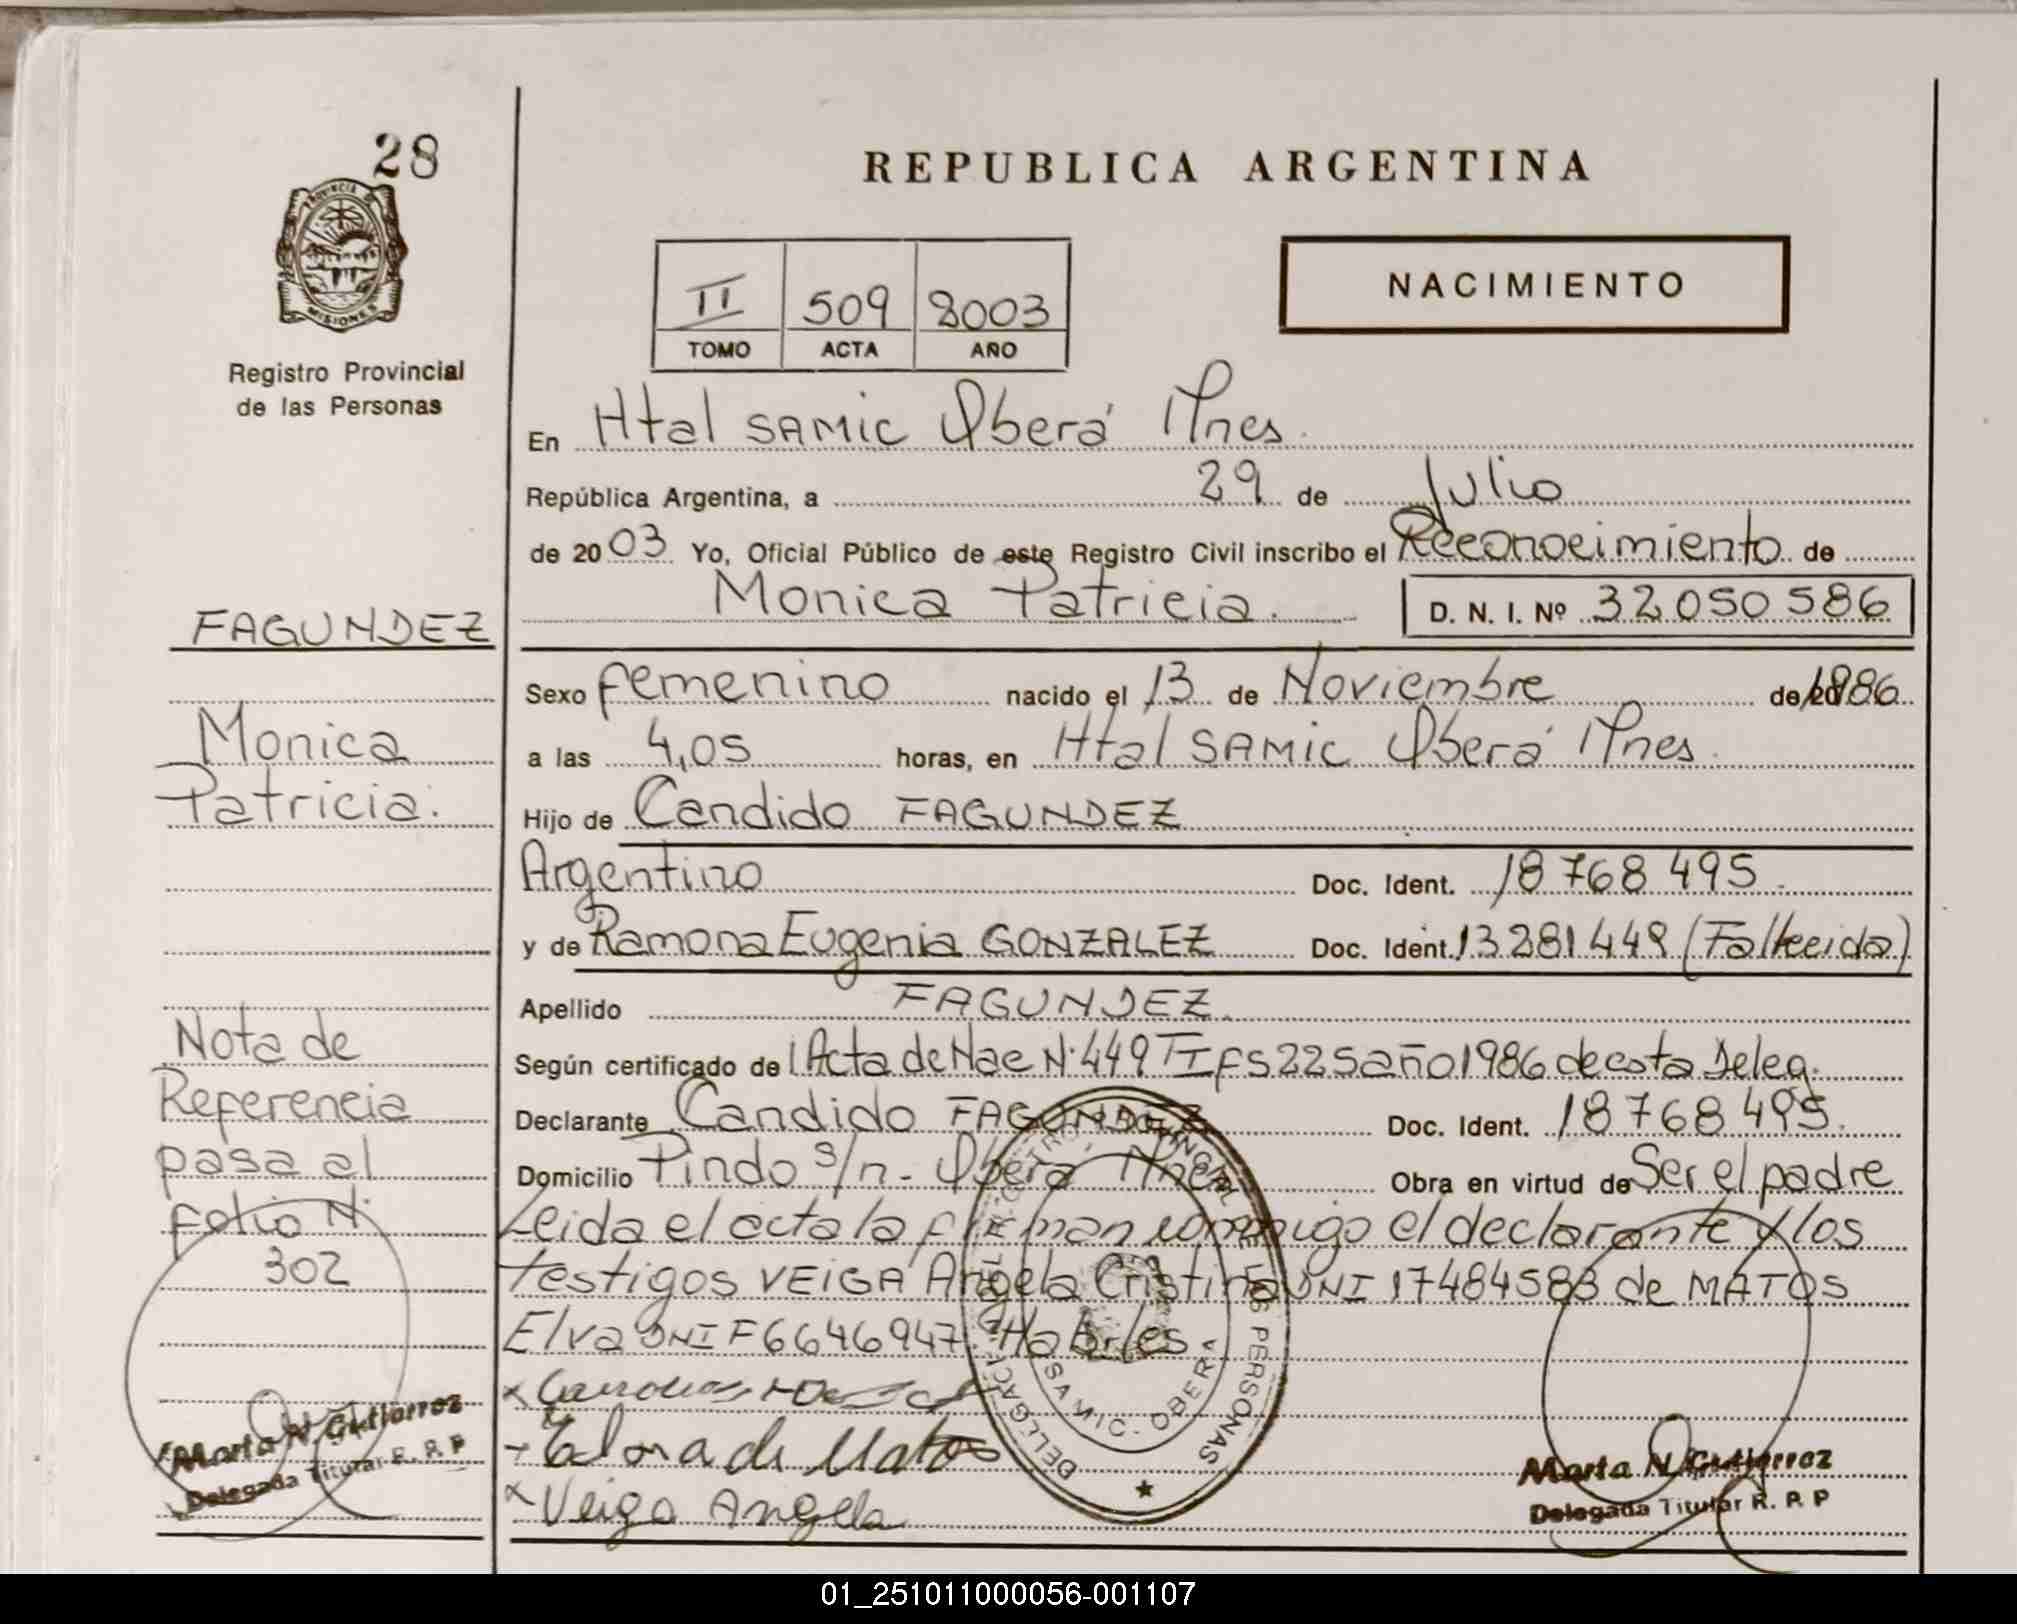 28
PROVINCIA
MISIONES
Registro Provincial
de las Personas
FAGUNDEZ
Monica
Patricia.
Nota de
Referencia
pasa al
folio N.
302
Marta N Gutierrez
Delegada Titular R. P. P
REPUBLICA ARGENTINA
II 509 2003
TOMO ACTA AÑO
NACIMIENTO
En Htal SAMIC Oberá Mnes.
República Argentina, a 29 de Julio
de 2003 Yo, Oficial Público de este Registro Civil inscribo el Reconocimiento de
Monica Patricia. D. N. I. Nº 32050586
Sexo femenino nacido el 13 de Noviembre de 1986
a las 4,05 horas, en Htal SAMIC Oberá Mnes.
Hijo de Candido FAGUNDEZ
Argentino Doc. Ident. 18768495.
y de Ramona Eugenia GONZALEZ Doc. Ident. 13281449 (Fallecida)
Apellido FAGUNDEZ.
Según certificado de Acta de Nac N. 449 TI FS 225 año 1986 de esta Deleg.
Declarante Candido FAGUNDEZ Doc. Ident. 18768495.
Domicilio Pindo s/n - Oberá Mnes Obra en virtud de Ser el padre
Leida el acta la firman conmigo el declarante y los
testigos VEIGA Angela Cristina DNI 17484583 de MATOS
Elva DNI F6646947. Habiles
x
Elva de Matos
x Veiga Angela
REGISTRO PROVINCIAL DE LAS PERSONAS
DELEGACION
SAMIC - OBERA
Marta N Gutierrez
Delegada Titular R. P. P
01_251011000056-001107